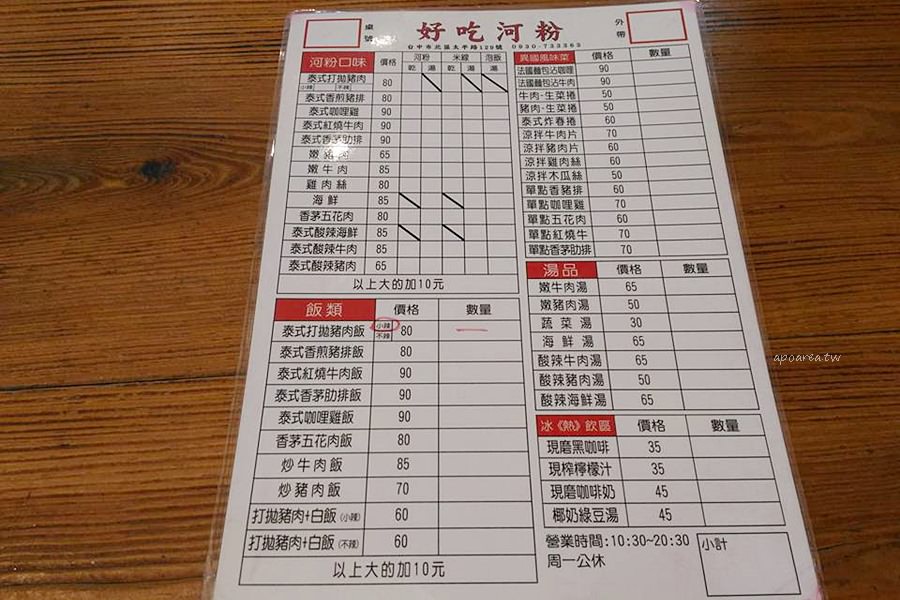 桌號
好吃河粉
外帶
台中市北區太平路129號 0930-733363
河粉口味 價格 河粉 米線 泡飯
乾 湯 乾 湯 湯
泰式打拋豬肉 80
小辣 不辣
泰式香煎豬排 80
泰式咖哩雞 90
泰式紅燒牛肉 90
泰式香茅肋排 90
嫩豬肉 65
嫩牛肉 85
雞肉絲 80
海鮮 85
香茅五花肉 80
泰式酸辣海鮮 85
泰式酸辣牛肉 85
泰式酸辣豬肉 65
以上大的加10元
飯類 價格 數量
泰式打拋豬肉飯 小辣 不辣 80
泰式香煎豬排飯 80
泰式紅燒牛肉飯 90
泰式香茅肋排飯 90
泰式咖哩雞飯 90
香茅五花肉飯 80
炒牛肉飯 85
炒豬肉飯 70
打拋豬肉+白飯(小辣) 60
打拋豬肉+白飯(不辣) 60
以上大的加10元
異國風味菜 價格 數量
法國麵包沾咖哩 90
法國麵包沾牛肉 90
牛肉-生菜捲 50
豬肉-生菜捲 50
泰式炸春捲 60
涼拌牛肉片 70
涼拌豬肉片 60
涼拌雞肉絲 60
涼拌木瓜絲 50
單點香豬排 60
單點咖哩雞 70
單點五花肉 60
單點紅燒牛 70
單點香茅肋排 70
湯品 價格 數量
嫩牛肉湯 65
嫩豬肉湯 50
蔬菜湯 30
海鮮湯 65
酸辣牛肉湯 65
酸辣豬肉湯 50
酸辣海鮮湯 65
冰《熱》飲區 價格 數量
現磨黑咖啡 35
現榨檸檬汁 35
現磨咖啡奶 45
椰奶綠豆湯 45
營業時間:10:30~20:30
周一公休
小計
apoarea.tw